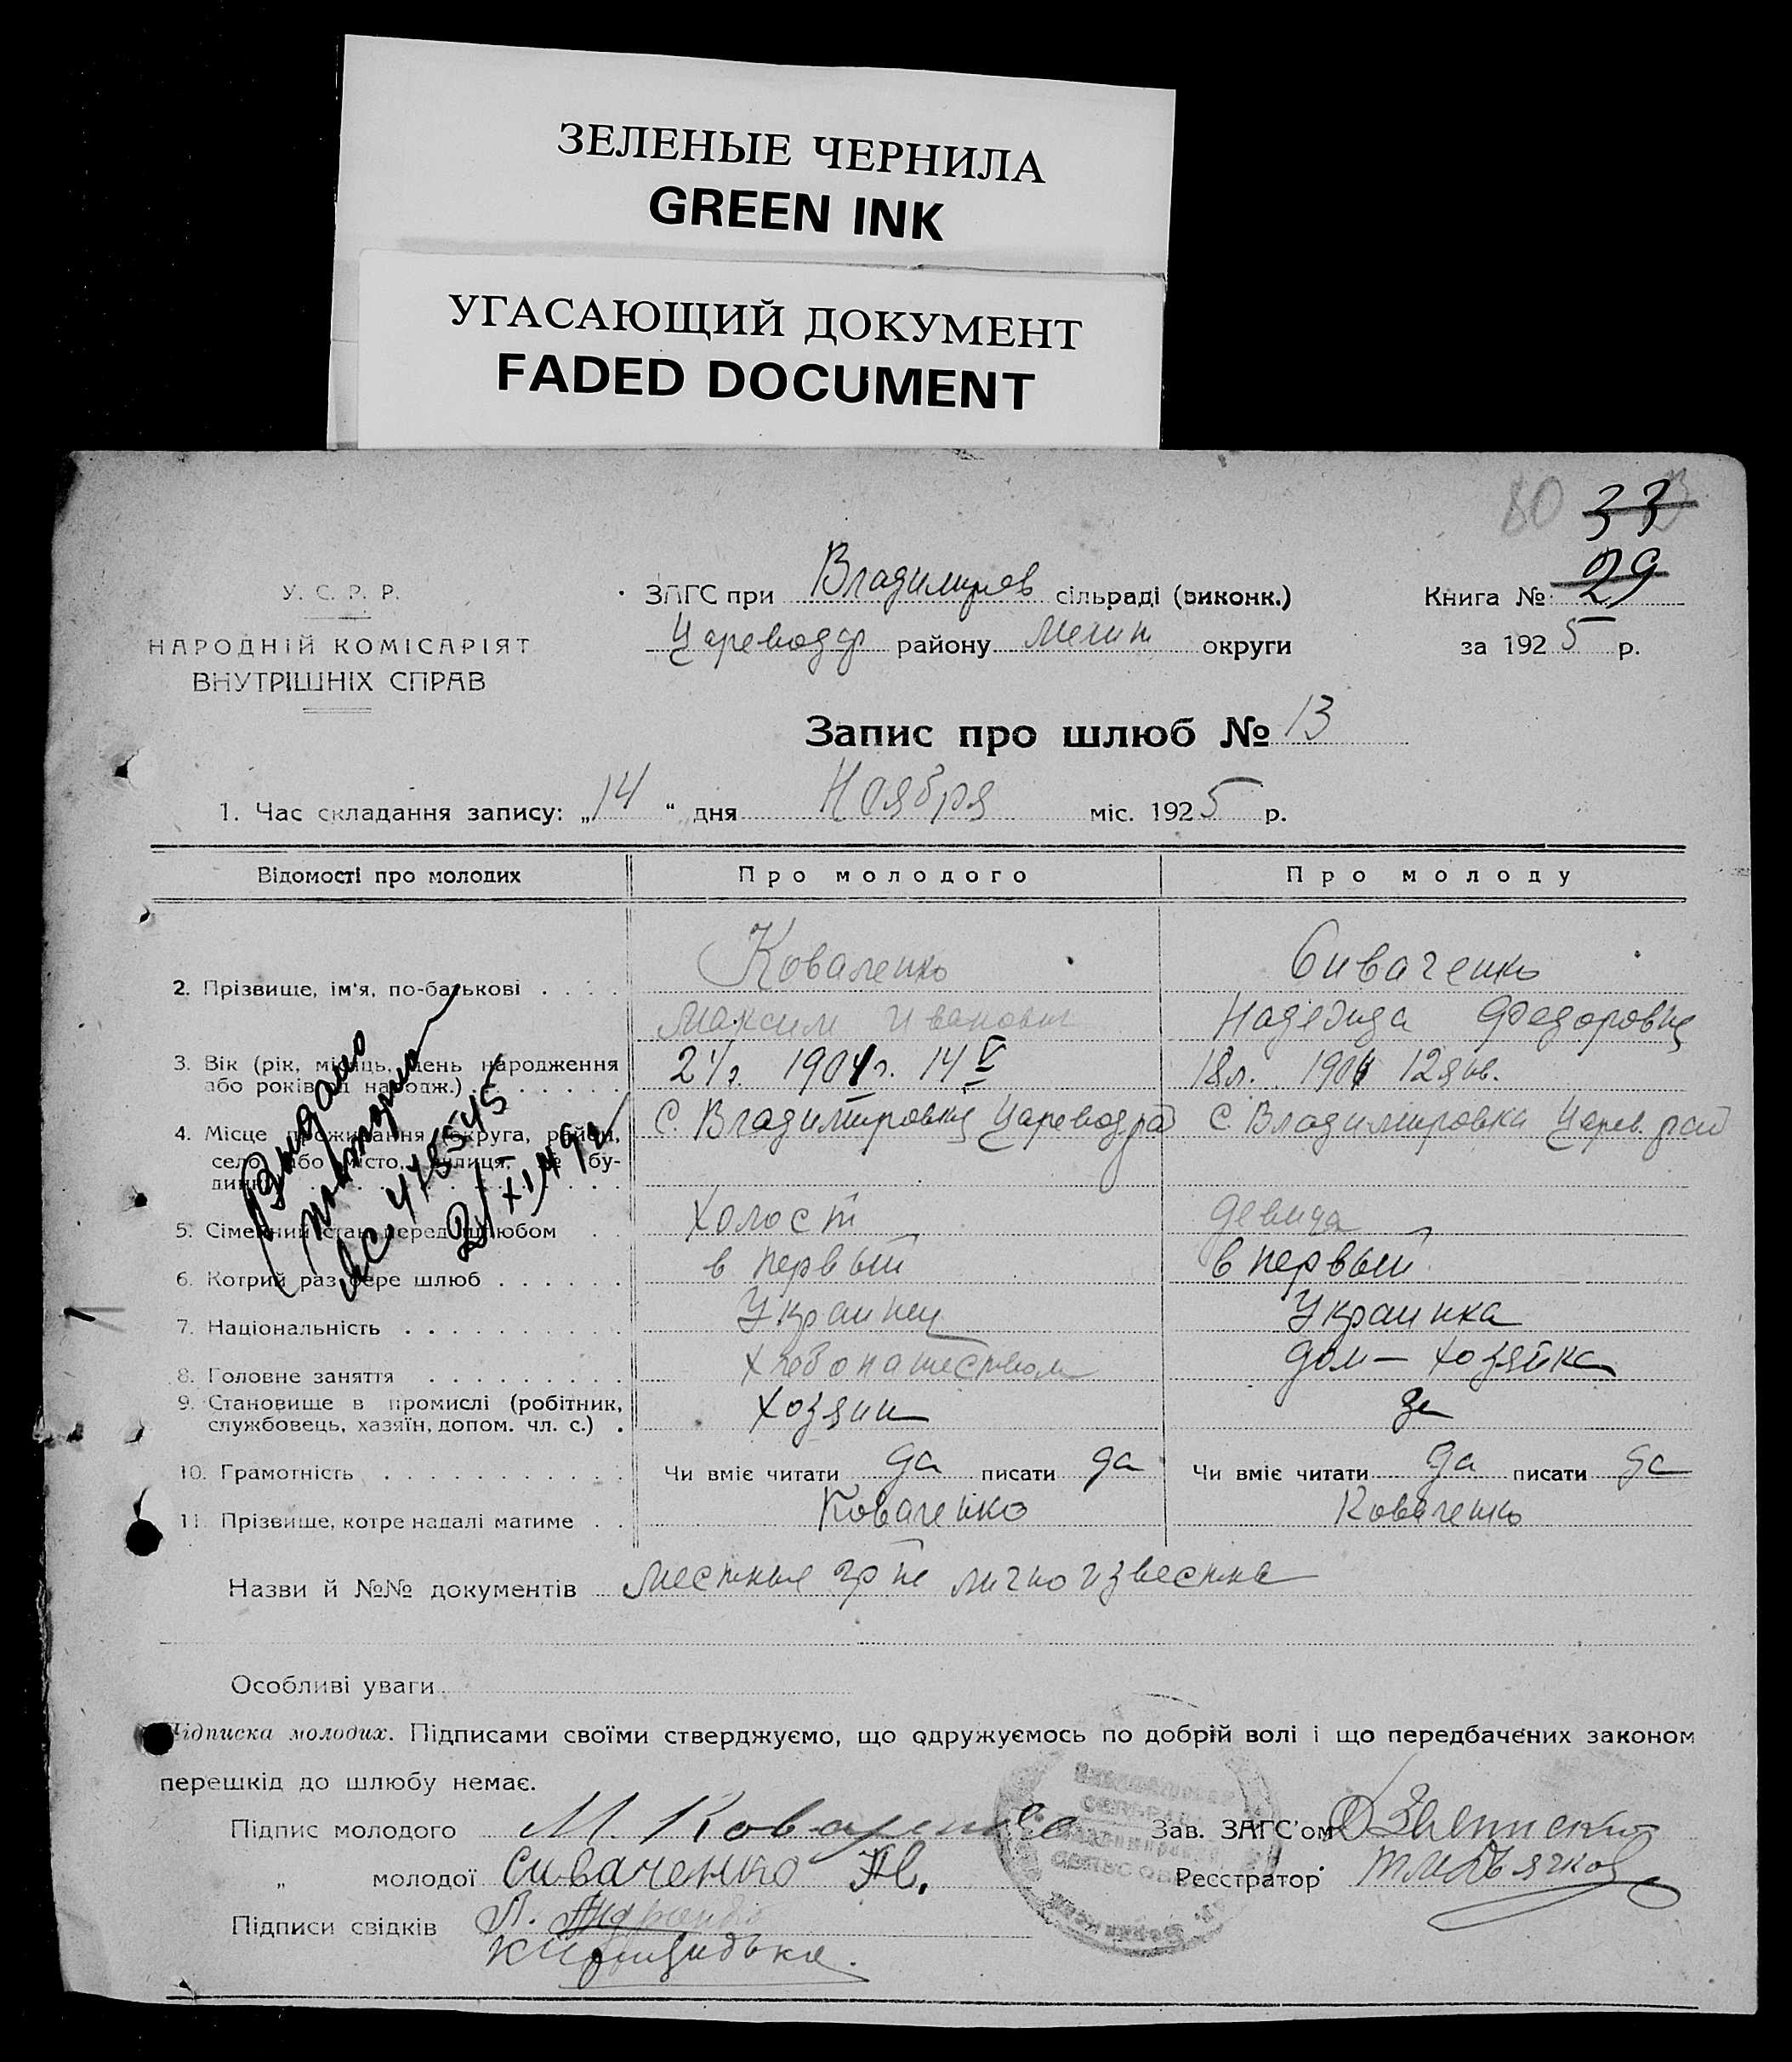 ЗЕЛЕНЫЕ ЧЕРНИЛА
GREEN INK
УГАСАЮЩИЙ ДОКУМЕНТ
FADED DOCUMENT
80 33
29
У. С. Р. Р.
НАРОДНІЙ КОМІСАРІЯТ
ВНУТРІШНІХ СПРАВ
ЗАГС при Владимиров сільраді (виконк.)
Цареводар району Мелит округи
Книга №
за 1925 р.
Запис про шлюб № 13
1. Час складання запису: „14“ дня Ноября міс. 1925 р.
Відомості про молодих Про молодого Про молоду
2. Прізвище, ім'я, по-батькові Коваленко Сиваченко
Максим Иванович Надежда Федоровна
3. Вік (рік, місяць, день народження або років від народж.) 21 г. 1904 г. 14 V 18 л. 12 янв.
4. Місце проживання (округа, район, село або місто, вулиця, № будинку) С. Владимировка С. Владимировка Царев. рай
5. Сімейний стан перед шлюбом Холост девица
6. Котрий раз бере шлюб в первый в первый
7. Національність Украинец Украинка
8. Головне заняття хлебопашеством дом-хозяйка
9. Становище в промислі (робітник, службовець, хазяїн, допом. чл. с.) хозяин
10. Грамотність Чи вміє читати да писати да Чи вміє читати да писати да
11. Прізвище, котре надалі матиме Коваленко Коваленко
Выдано
повторно
21/XI
Назви й №№ документів местные гр не лично известны
Особливі уваги
Підписка молодих. Підписами своїми стверджуємо, що одружуємось по добрій волі і що передбачених законом
перешкід до шлюбу немає.
Підпис молодого М. Коваленко Зав. ЗАГС'ом
„ молодої Сиваченко Н. Реєстратор
Підписи свідків